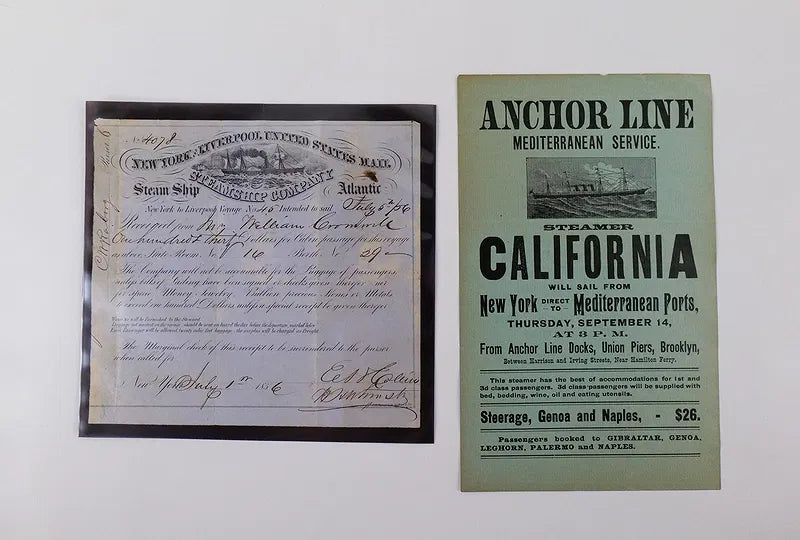 No. 4078
NEW YORK & LIVERPOOL UNITED STATES MAIL
STEAMSHIP COMPANY
Steam Ship Atlantic
New York to Liverpool Voyage No. 45 Intended to sail July 5th/56
Received from Mr William
One hundred & thirty Dollars for Cabin passage for the voyage
as above, State Room No. 16 Berth No. 29
The Company will not be accountable for the Luggage of passengers
unless bills of Lading have been signed or checks given therefor nor
for Specie, Money, Jewelry, Bullion, precious Stones or Metals
to exceed one hundred Dollars unless a special receipt be given therefor
The Marginal check of this receipt to be surrendered to the purser
when called for.
New York July 1st 1856
ANCHOR LINE
MEDITERRANEAN SERVICE.
STEAMER
CALIFORNIA
WILL SAIL FROM
New York DIRECT TO Mediterranean Ports,
THURSDAY, SEPTEMBER 14,
AT 3 P. M.
From Anchor Line Docks, Union Piers, Brooklyn,
Between Harrison and Irving Streets, Near Hamilton Ferry.
This steamer has the best of accommodations for 1st and
3d class passengers. 3d class passengers will be supplied with
bed, bedding, wine, oil and eating utensils.
Steerage, Genoa and Naples, - $26.
Passengers booked to GIBRALTAR, GENOA,
LEGHORN, PALERMO and NAPLES.